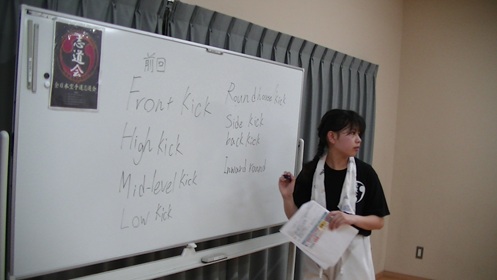 志道会
前回
Front Kick
High kick
Mid-level Kick
Low Kick
Roundhouse Kick
Side kick
back kick
Inward